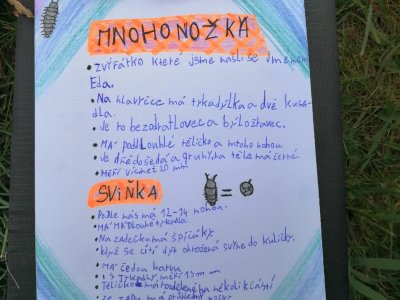 MNOHONOŽKA
• ZVÍŘÁTKO které jsme našli se jmenem
Eda.
• Na hlavičce má tykadýlka a dvě kusa-
dla.
• Je to bezobratlovec a býložravec.
• MÁ podlouhlé tělíčko a mnoho nohou.
• Je hnědošedá a pruhy na těle má černé.
• MĚŘÍ více než 20 mm
SVIŇKA =
• PODLE nás má 12-14 nohou.
• MÁ MÁ DLOUhé tykadla.
• Na zadečku má špičáky.
• když se cítí být ohrožená svine do kuličky.
• MÁ šedou barvu
• I S TYkadly měří 15 mm
• Tělíčko má rozdělené na několik částí